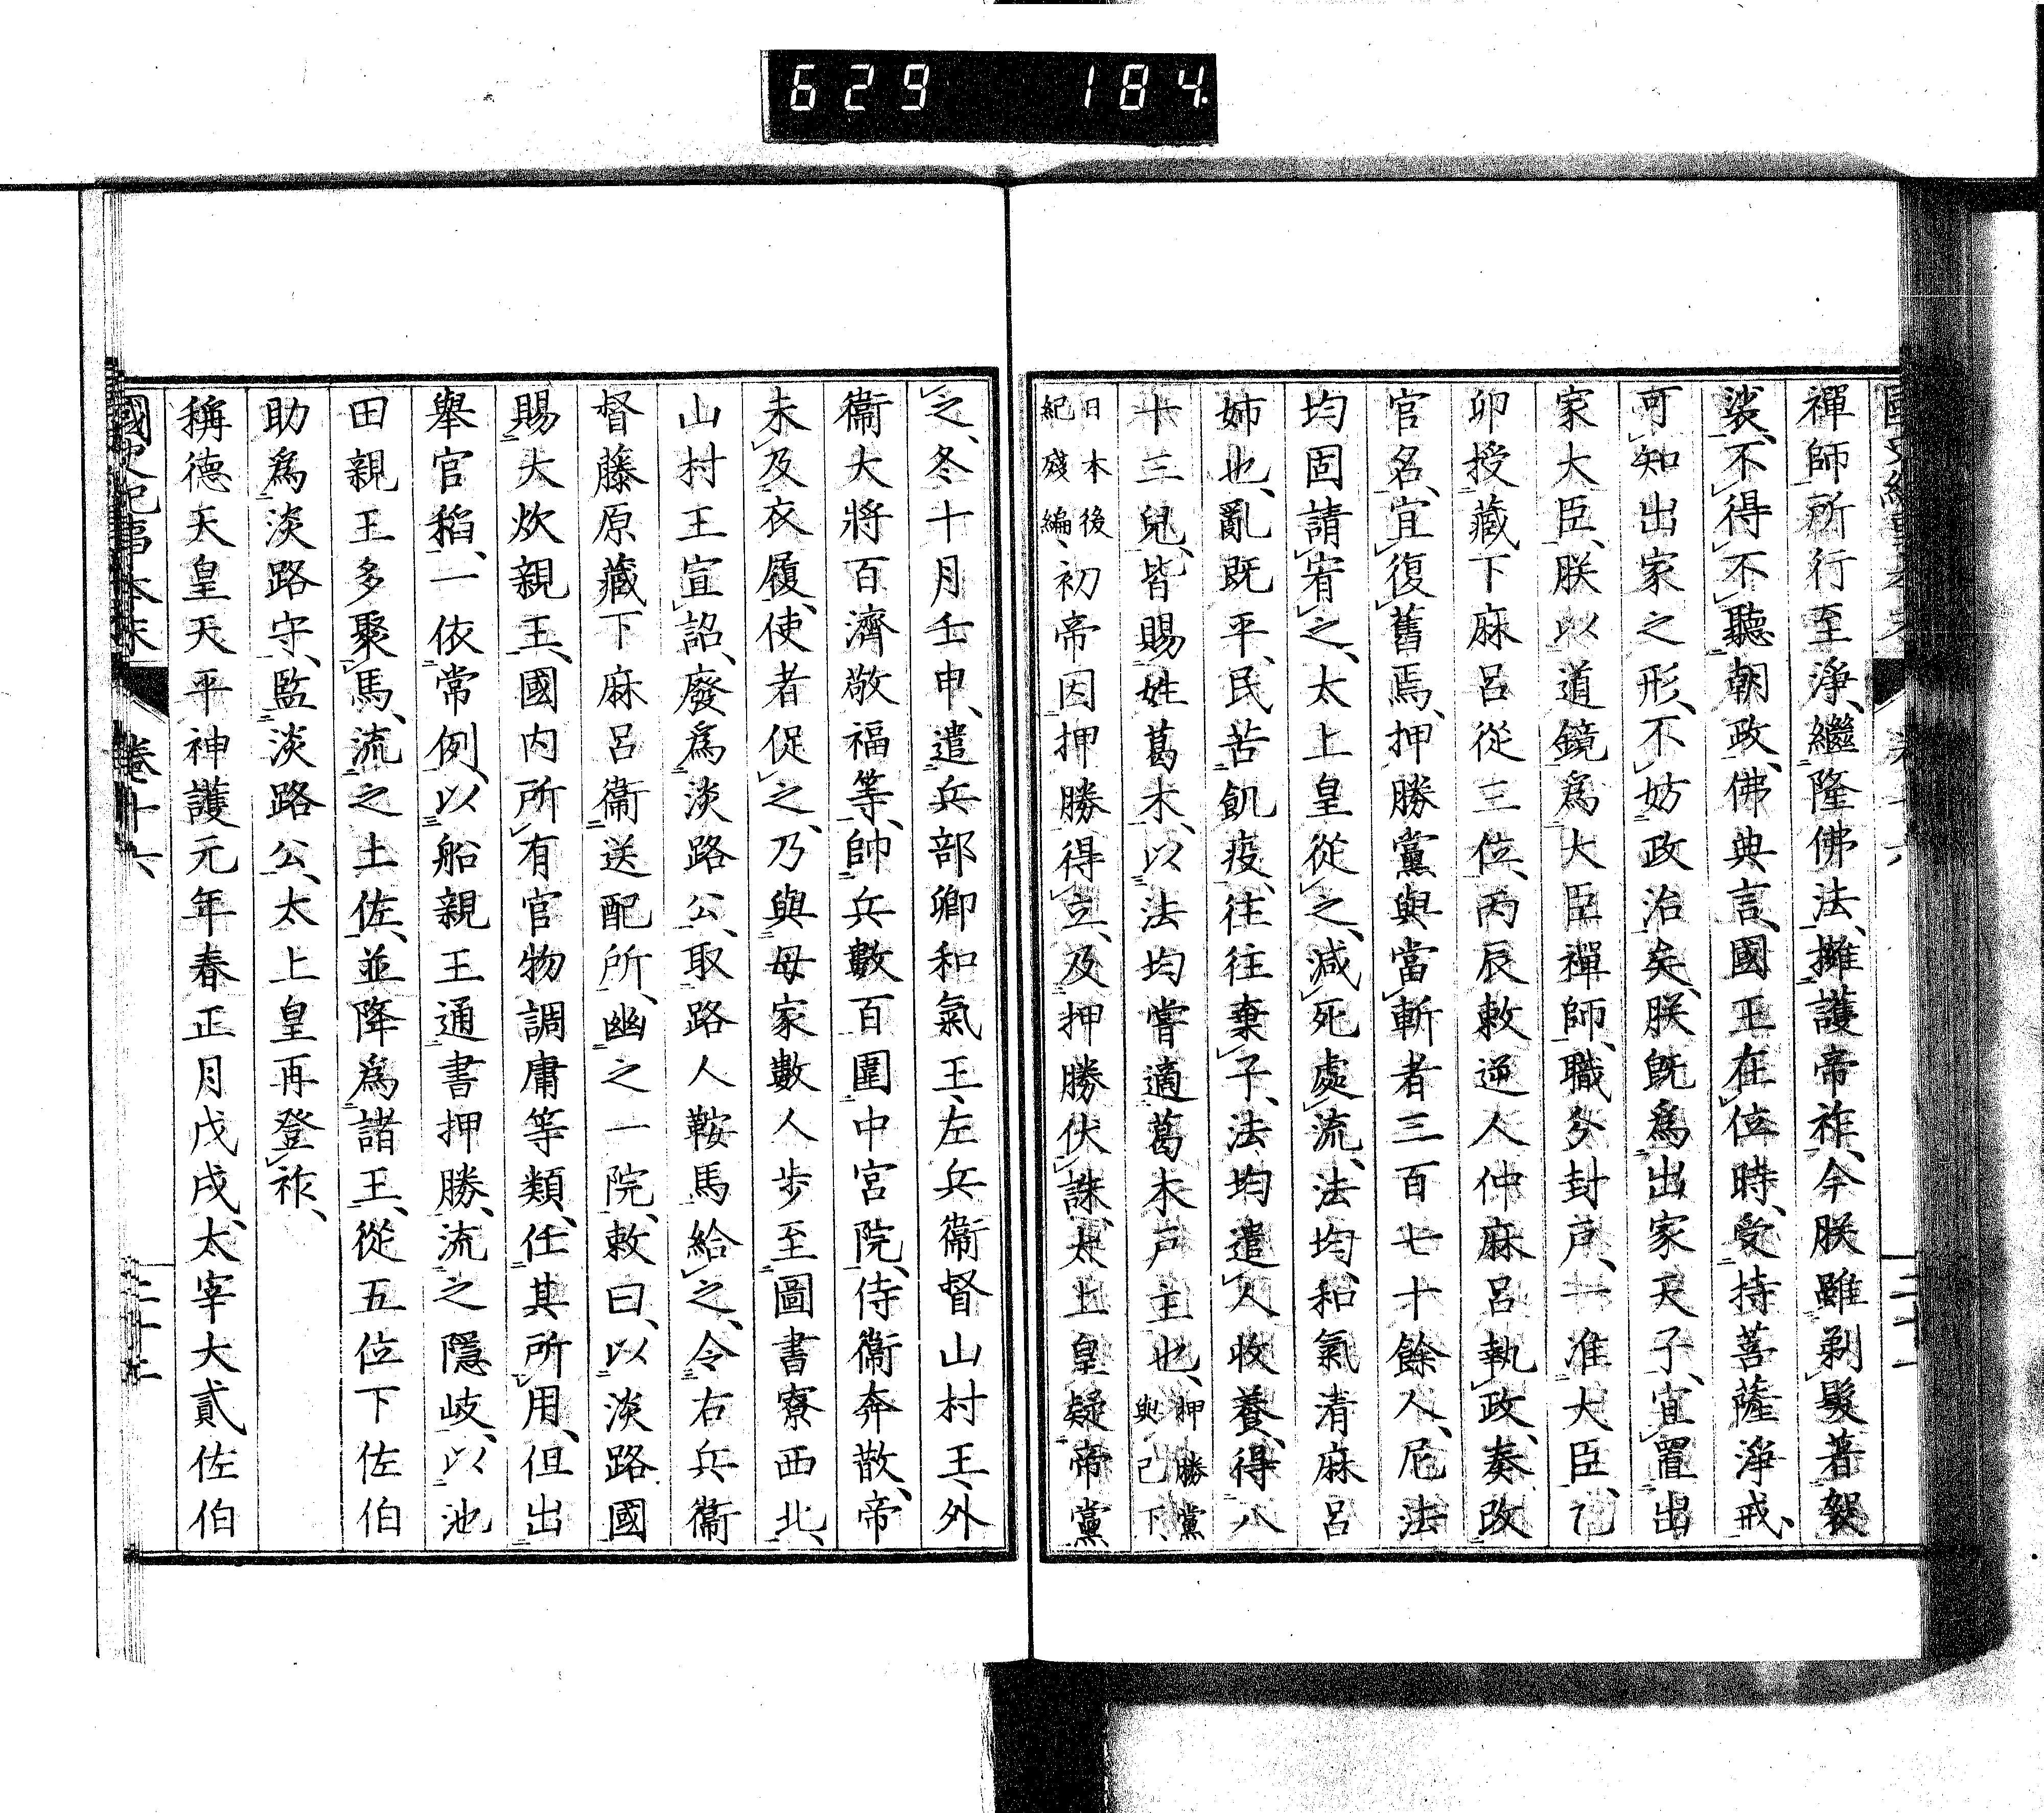 629 184.
禪師所行至淨、繼隆佛法、擁護帝祚、今朕雖剃髮著袈
裟、不得不聽朝政、佛典言、國王在位時、受持菩薩淨戒、
可知出家之形、不妨政治矣、朕既爲出家天子、宜置出
家大臣、朕以道鏡爲大臣禪師、職分封戸、一准大臣、乙
卯授藏下麻呂從三位、丙辰敕逆人仲麻呂執政、奏改
官名、宜復舊焉、押勝黨與當斬者三百七十餘人、尼法
均固請宥之、太上皇從之、減死處流、法均、和氣清麻呂
姉也、亂既平、民苦飢疫、往往棄子、法均遣人收養、得八
十三兒、皆賜姓葛木、以法均嘗適葛木戸主也、押勝黨與、己下、
日本後紀殘編、初帝因押勝得立、及押勝伏誅、太上皇疑帝黨
之、冬十月壬申、遣兵部卿和氣王、左兵衞督山村王、外
衞大將百濟敬福等、帥兵數百圍中宮院、侍衞奔散、帝
未及衣履、使者促之、乃與母家數人歩至圖書寮西北、
山村王宣詔、廢爲淡路公、取路人鞍馬給之、令右兵衞
督藤原藏下麻呂衞送配所、幽之一院、敕曰、以淡路國
賜大炊親王、國内所有官物調庸等類、任其所用、但出
舉官稻、一依常例、以船親王通書押勝、流之隱岐、以池
田親王多聚馬、流之土佐、並降爲諸王、從五位下佐伯
助爲淡路守、監淡路公、太上皇再登祚、
稱德天皇天平神護元年春正月戊戌、太宰大貳佐伯
國史紀事本末 卷十六 二十二